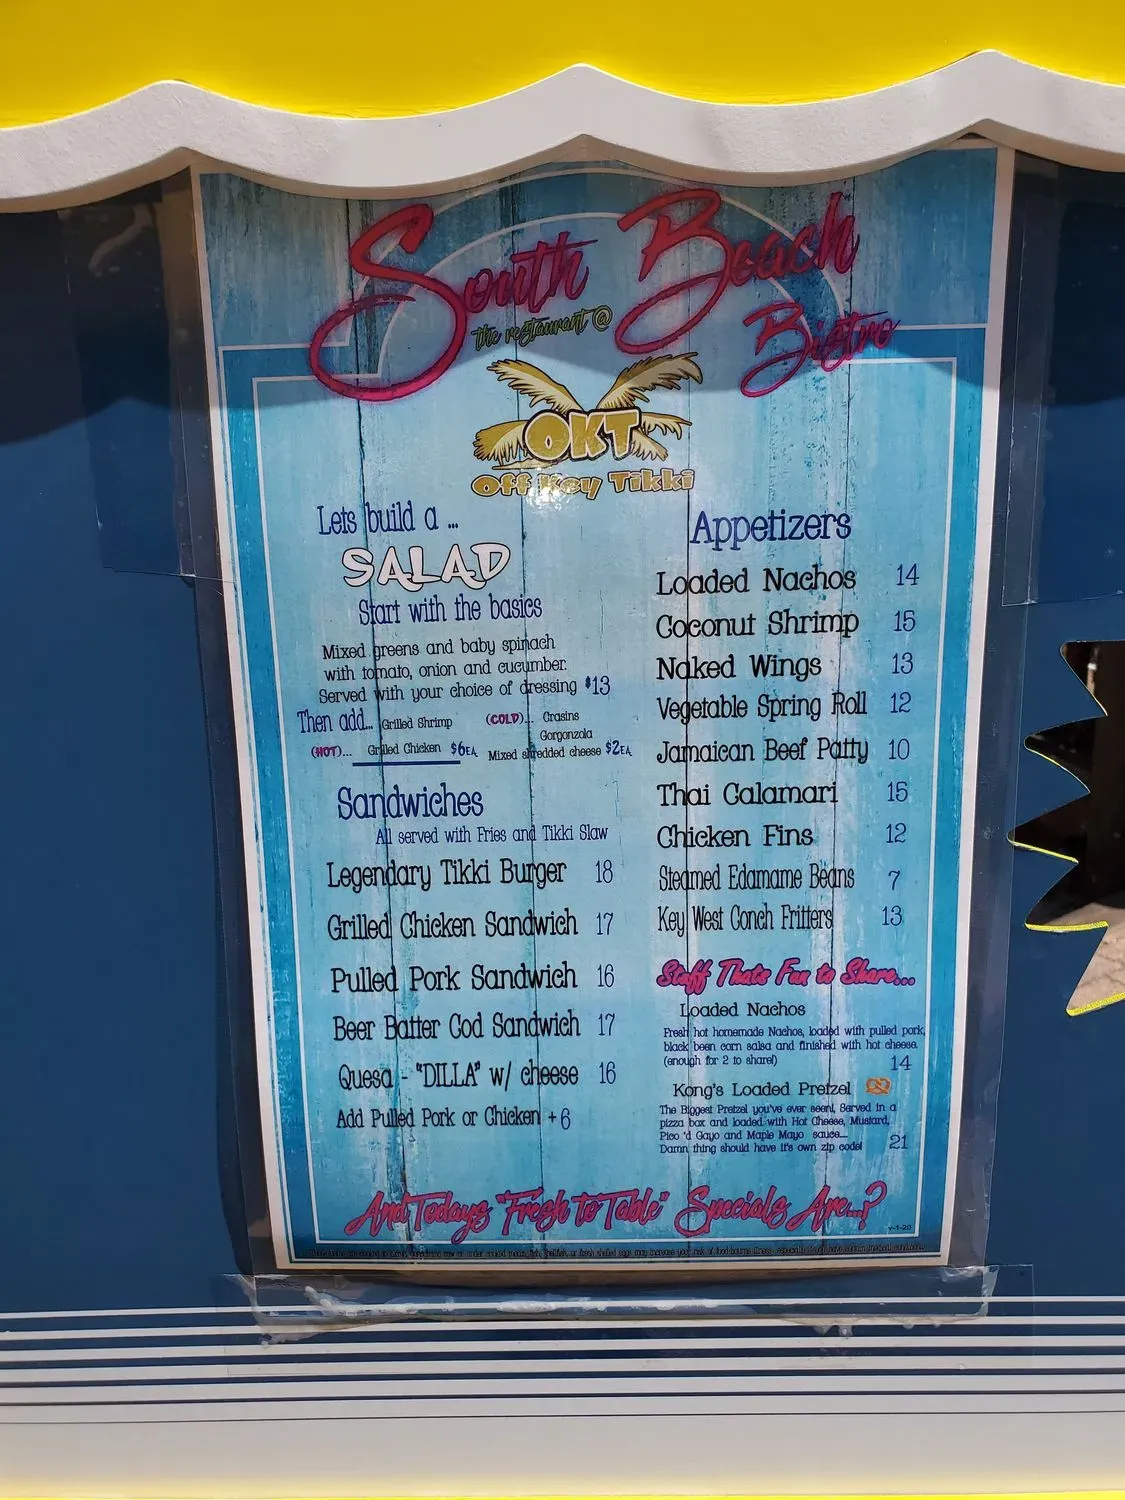 South Beach
the restaurant @
Bistro
OKT
Off Key Tikki
Lets build a ...
SALAD
Start with the basics
Mixed greens and baby spinach
with tomato, onion and cucumber.
Served with your choice of dressing $13
Then add... Grilled Shrimp (COLD)... Crasins
Gorgonzola
(HOT)... Grilled Chicken $6EA. Mixed shredded cheese $2EA.
Sandwiches
All served with Fries and Tikki Slaw
Legendary Tikki Burger 18
Grilled Chicken Sandwich 17
Pulled Pork Sandwich 16
Beer Batter Cod Sandwich 17
Quesa - "DILLA" w/ cheese 16
Add Pulled Pork or Chicken +6
Appetizers
Loaded Nachos 14
Coconut Shrimp 15
Naked Wings 13
Vegetable Spring Roll 12
Jamaican Beef Patty 10
Thai Calamari 15
Chicken Fins 12
Steamed Edamame Beans 7
Key West Conch Fritters 13
Staff Thats Fun to Share...
Loaded Nachos
Fresh hot homemade Nachos, loaded with pulled pork,
black been corn salsa and finished with hot cheese.
(enough for 2 to share!)
14
Kong's Loaded Pretzel
The Biggest Pretzel you've ever seen!, Served in a
pizza box and loaded with Hot Cheese, Mustard,
Pico 'd Gayo and Maple Mayo sauce....
Damn thing should have it's own zip code! 21
And Todays "Fresh to Table" Specials Are...?
v-1-20